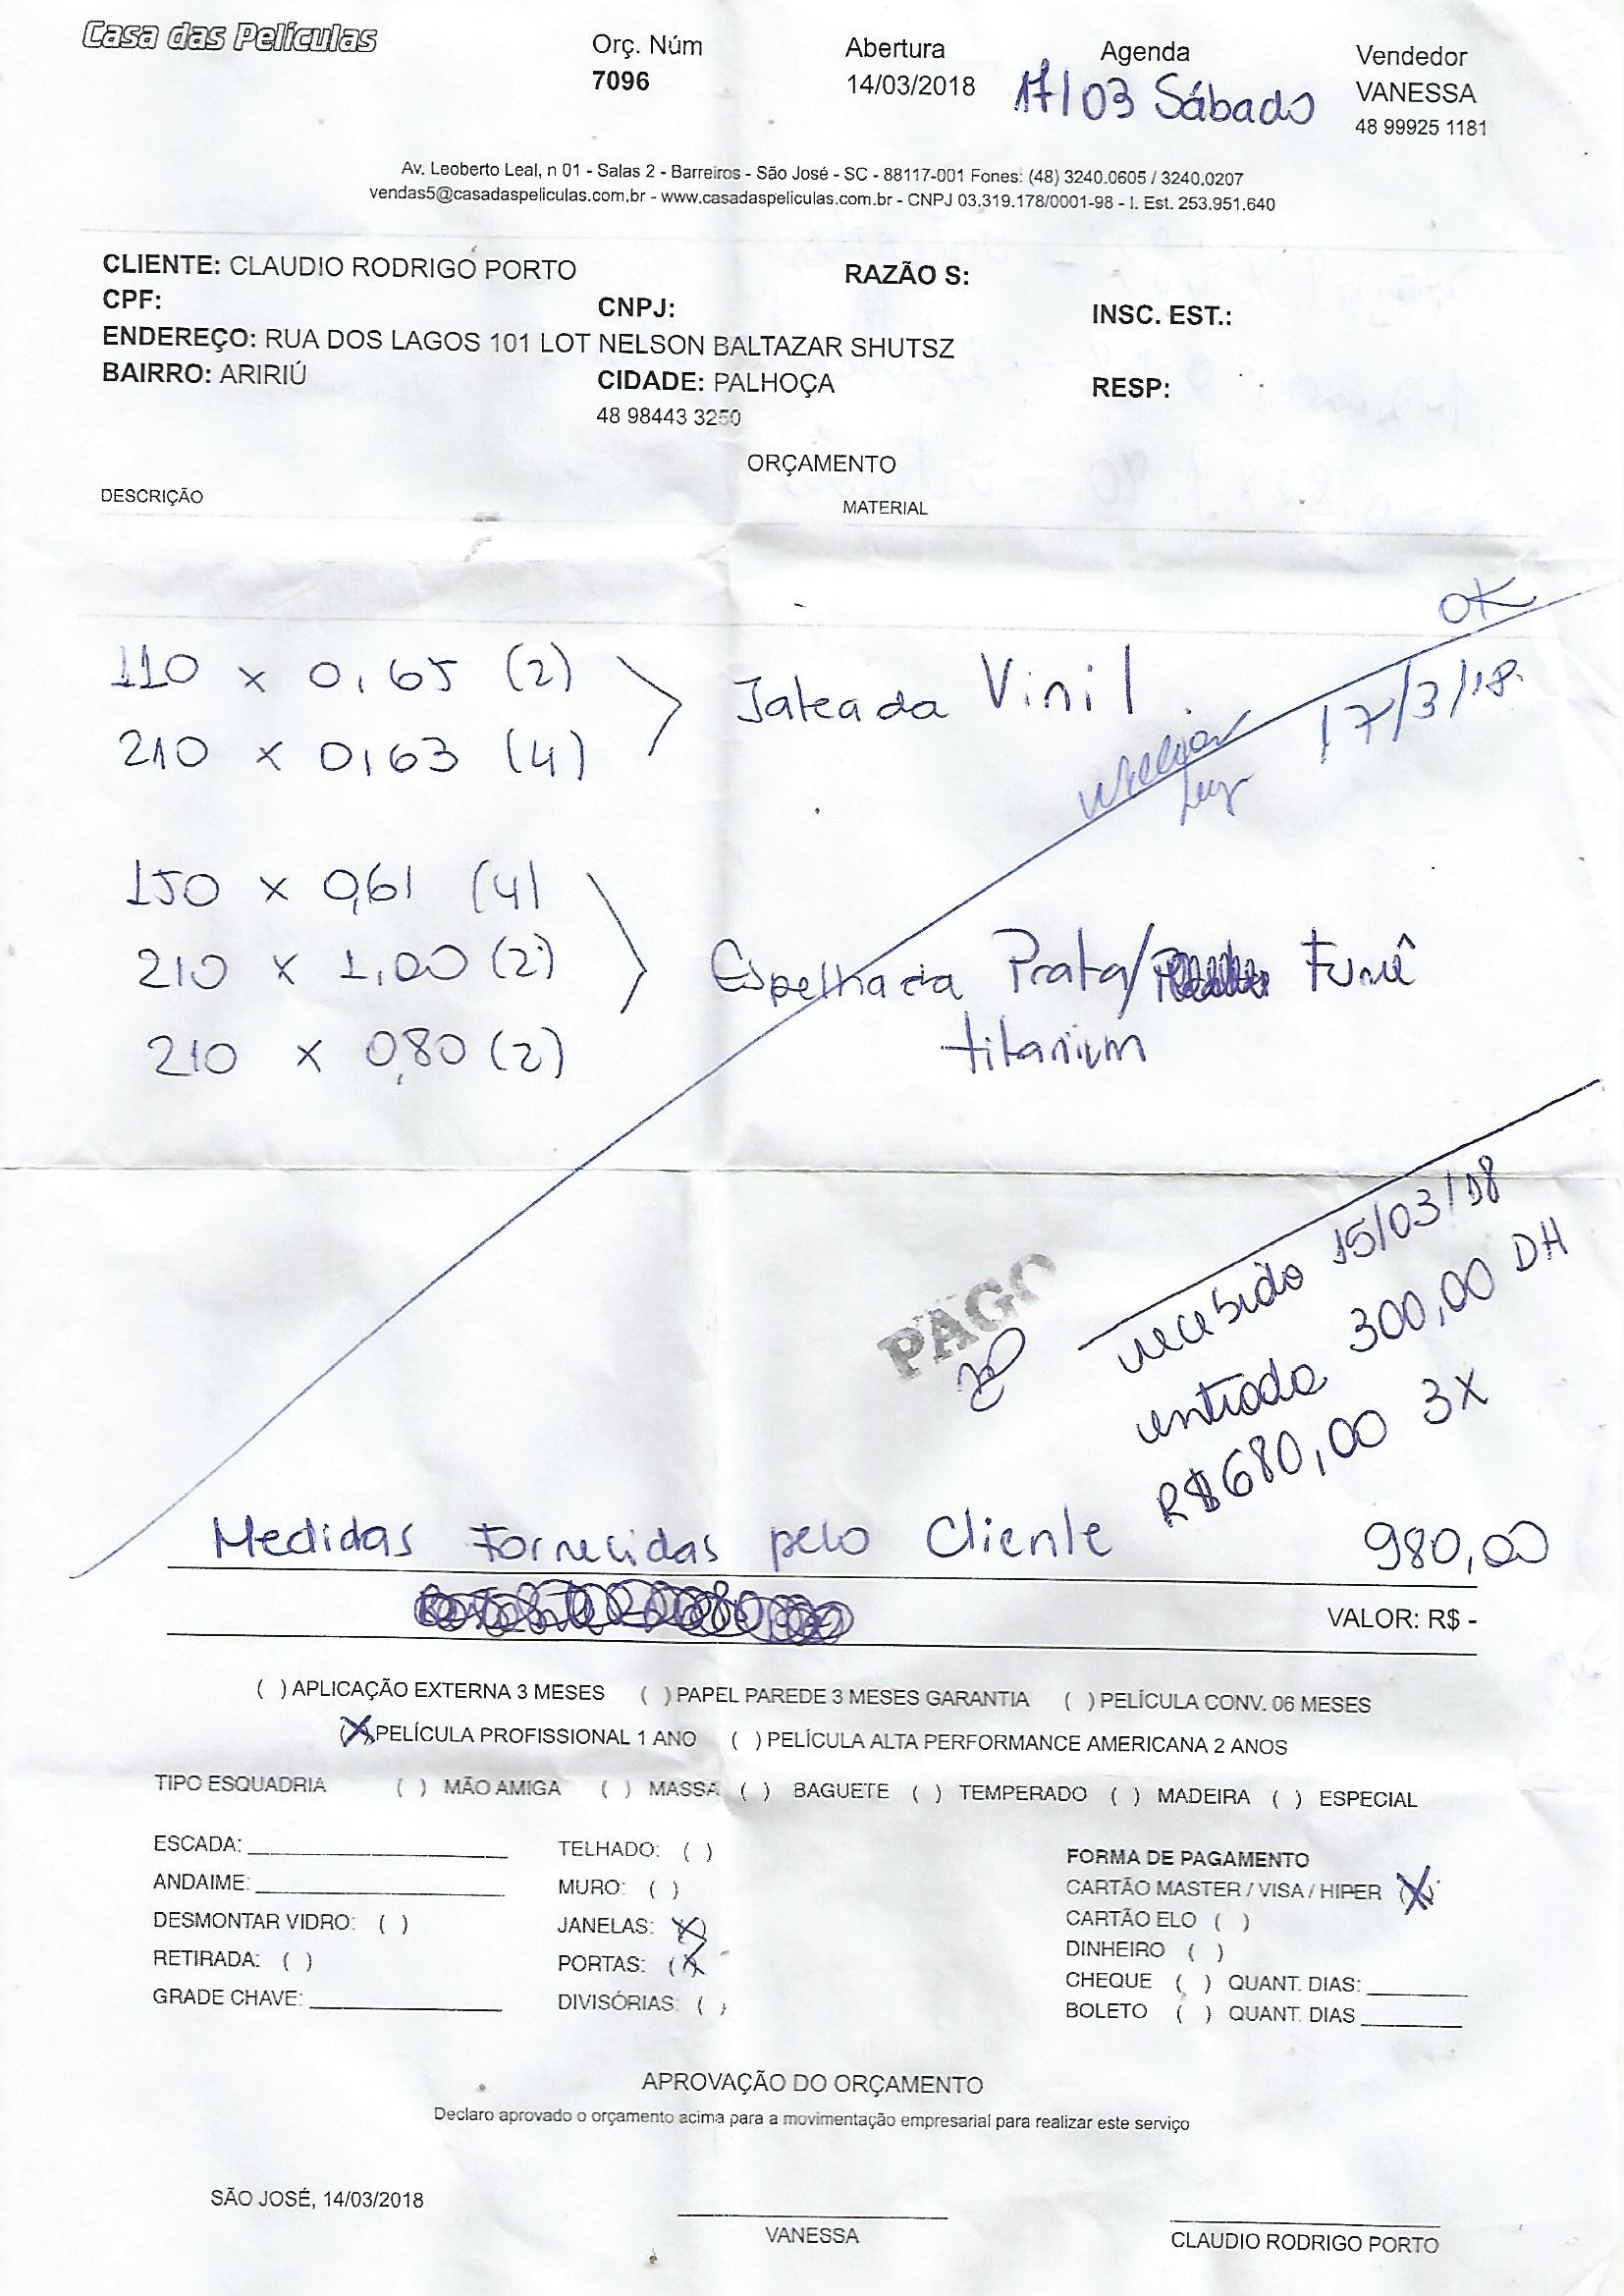 Casa das Películas
Orç. Núm
7096
Abertura
14/03/2018
Agenda
17/03 Sábado
Vendedor
VANESSA
48 99925 1181
Av. Leoberto Leal, n 01 - Salas 2 - Barreiros - São José - SC - 88117-001 Fones: (48) 3240.0605 / 3240.0207
vendas5@casadaspeliculas.com.br - www.casadaspeliculas.com.br - CNPJ 03.319.178/0001-98 - I. Est. 253.951.640
CLIENTE: CLAUDIO RODRIGO PORTO RAZÃO S:
CPF: CNPJ: INSC. EST.:
ENDEREÇO: RUA DOS LAGOS 101 LOT NELSON BALTAZAR SHUTSZ
BAIRRO: ARIRIÚ CIDADE: PALHOÇA RESP:
48 98443 3250
ORÇAMENTO
DESCRIÇÃO MATERIAL
OK
110 x 0,65 (2)
210 x 0,63 (4)
Jateada Vinil
17/3/18.
150 x 0,61 (4)
210 x 1,00 (2)
210 x 0,80 (2)
Espelhada Prata/ Fumê
titanium
PAGO
recebido 15/03/18
entrada 300,00 DH
R$680,00 3X
Medidas Fornecidas pelo Cliente 980,00
VALOR: R$ -
( ) APLICAÇÃO EXTERNA 3 MESES ( ) PAPEL PAREDE 3 MESES GARANTIA ( ) PELÍCULA CONV. 06 MESES
(X) PELÍCULA PROFISSIONAL 1 ANO ( ) PELÍCULA ALTA PERFORMANCE AMERICANA 2 ANOS
TIPO ESQUADRIA ( ) MÃO AMIGA ( ) MASSA ( ) BAGUETE ( ) TEMPERADO ( ) MADEIRA ( ) ESPECIAL
ESCADA: TELHADO: ( )
FORMA DE PAGAMENTO
ANDAIME: MURO: ( ) CARTÃO MASTER / VISA / HIPER (X)
DESMONTAR VIDRO: ( ) JANELAS: (X) CARTÃO ELO ( )
RETIRADA: ( ) PORTAS: (X) DINHEIRO ( )
GRADE CHAVE: DIVISÓRIAS: ( ) CHEQUE ( ) QUANT. DIAS:
BOLETO ( ) QUANT. DIAS
APROVAÇÃO DO ORÇAMENTO
Declaro aprovado o orçamento acima para a movimentação empresarial para realizar este serviço
SÃO JOSÉ, 14/03/2018
VANESSA
CLAUDIO RODRIGO PORTO